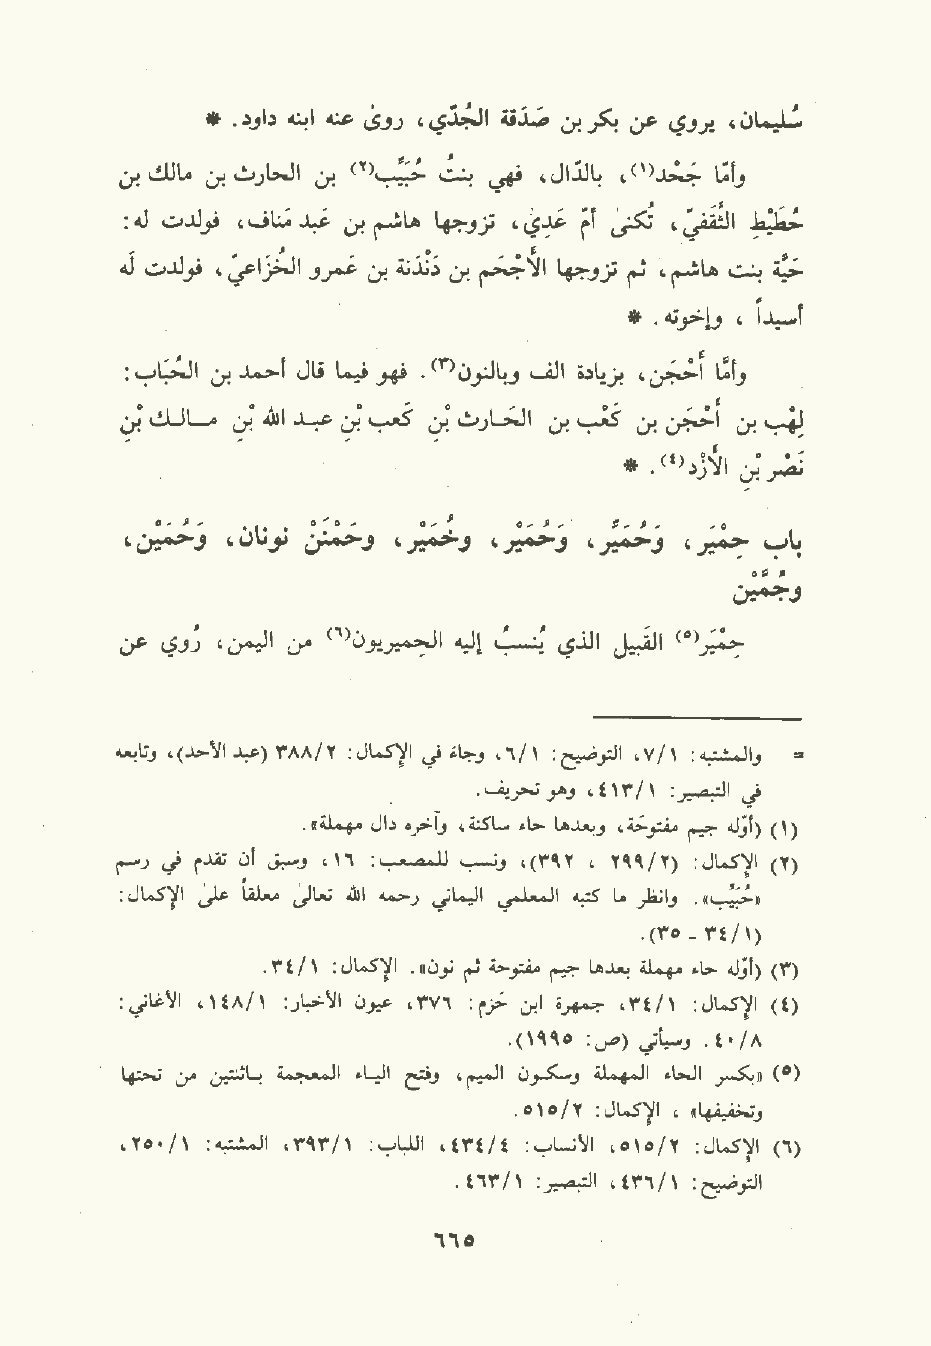 سُلَيمان، يروي عن بكر بن صَدَقة الجُدّي، روىٰ عنه ابنه داود. *
وأمَّا جَحْد(١)، بالدّال، فهي بنتُ حُبَيِّب(٢) بن الحارث بن مالك بن
حُطَيْط الثَّقَفيّ، تُكنىٰ أمّ عَدِيّ، تزوجها هاشم بن عَبد مَناف، فولدت له:
حَيَّة بنت هاشم، ثم تزوجها الأجْحَم بن دَنْدَنة بن عَمرو الخُزاعيّ، فولدت لَه
أسيداً ، وإخوته. *
وأمَّا أَحْجَن، بزيادة الف وبالنون(٣). فهو فيما قال أحمد بن الحُبَاب:
لِهْب بن أَحْجَن بن كَعْب بن الحَـارث بْن كَعب بْن عـبـد الله بْن مـالـك بْن
نَصْر بْن الأَزْد(٤). *
باب حِمْيَر، وَحُمَيِّر، وَحُمَيْر، وخُمَيْر، وحَمْنَنْ نونان، وَحُمَيْن،
وجُمَّيْن
حِمْيَر(٥) القَبيل الذي يُنسبُ إليه الحِميريون(٦) من اليمن، رُوي عن
= والمشتبه: ٧/١، التوضيح: ٦/١، وجاءَ في الإكمال: ٣٨٨/٢ (عبد الأحد)، وتابعه
في التبصير: ٤١٣/١، وهو تحريف.
(١) (أوّله جيم مفتوحَة، وبعدها حاء ساكنة، وآخره دال مهملة».
(٢) الإكمال: (٢٩٩/٢ ، ٣٩٢)، ونسب للمصعب: ١٦، وسبق أن تقدم في رسم
«حُبَيِّب». وانظر ما كتبه المعلمي اليماني رحمه الله تعالىٰ معلقاً علىٰ الإكمال:
(٣٤/١ - ٣٥).
(٣) (أوّله حاء مهملة بعدها جيم مفتوحة ثم نون». الإكمال: ٣٤/١.
(٤) الإكمال: ٣٤/١، جمهرة ابن حَزم: ٣٧٦، عيون الأخبار: ١٤٨/١، الأغاني:
٤٠/٨. وسيأتي (ص: ١٩٩٥).
(٥) «بكسر الحاء المهملة وسكون الميم، وفتح الياء المعجمة باثنتين من تحتها
وتخفيفها» ، الإكمال: ٥١٥/٢.
(٦) الإكمال: ٥١٥/٢، الأنساب: ٤٣٤/٤، اللباب: ٣٩٣/١، المشتبه: ٢٥٠/١،
التوضيح: ٤٣٦/١، التبصير: ٤٦٣/١.
٦٦٥